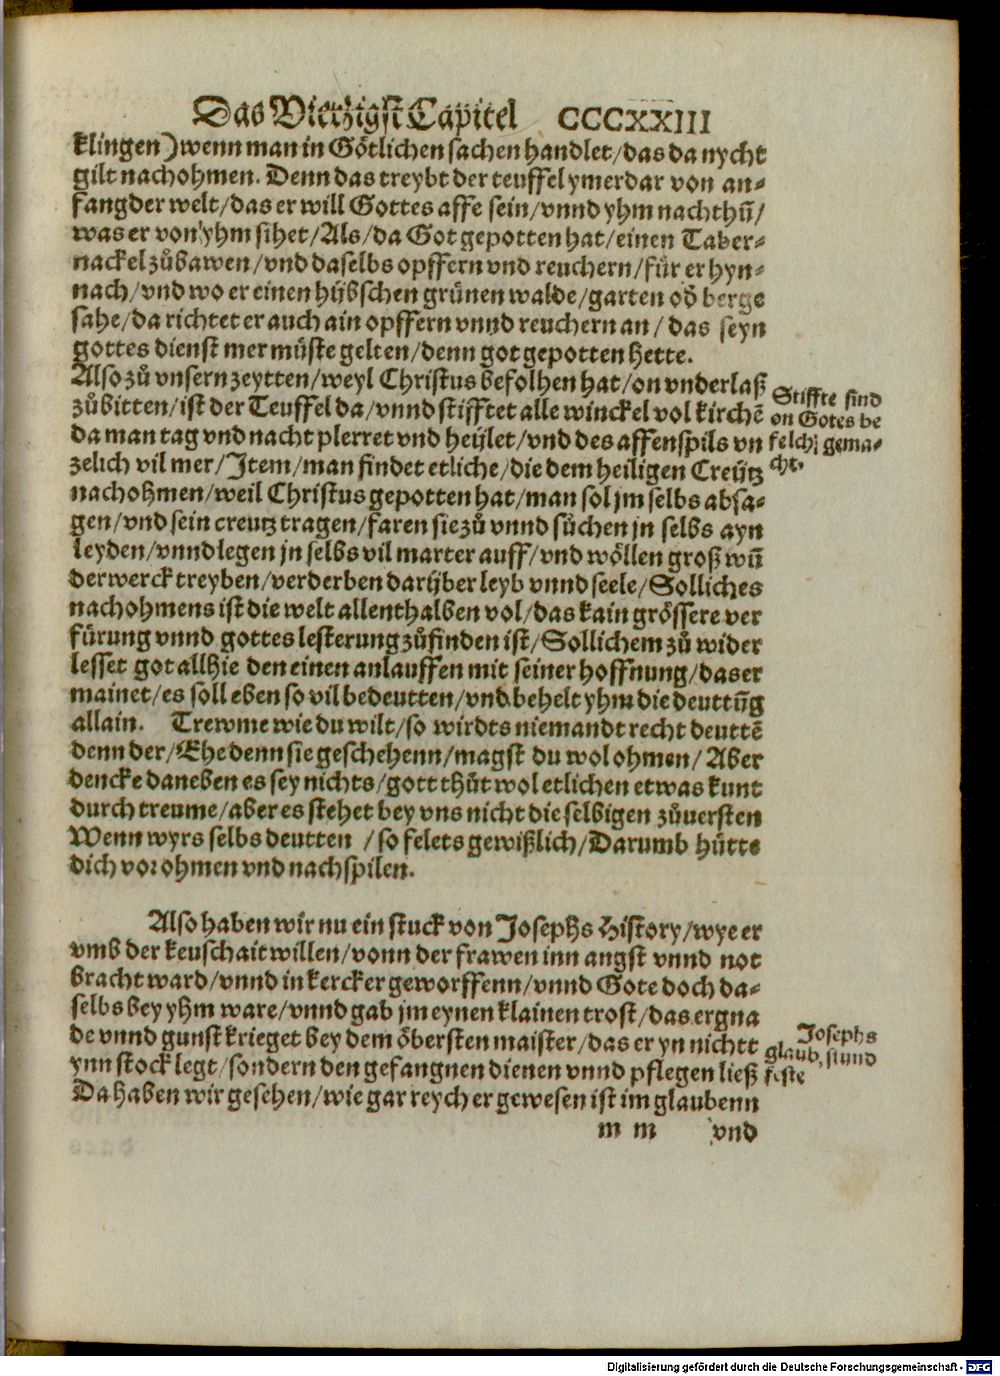 Das Viertzigst Capitel CCCXXIII
klingen) wenn man in Götlichen sachen handlet/das da nycht
gilt nachohmen. Denn das treybt der teuffel ymerdar von an-
fang der welt/das er will Gottes affe sein/vnnd yhm nachthū/
was er von yhm sihet/Als/da Got gepotten hat/einen Taber-
nackel zůbawen/vnd daselbs opffern vnd reuchern/für er hyn-
nach/vnd wo er einen hüb̈schen grünen walde/garten od̄ berge
sahe/da richtet er auch ain opffern vnnd reuchern an/das seyn
gottes dienst mer müste gelten/denn got gepotten hette.
Also zů vnsern zeytten/weyl Christus befolhen hat/on vnderlaß
zůbitten/ist der Teuffel da/vnnd stifftet alle winckel vol kirchē
da man tag vnd nacht plerret vnd heület/vnd des affenspils vn
zelich vil mer/Item/man findet etliche/die dem heiligen Creütz
nachohmen/weil Christus gepotten hat/man sol jm selbs absa-
gen/vnd sein creutz tragen/faren sie zů vnnd sůchen jn selbs ayn
leyden/vnnd legen jn selbs vil marter auff/vnd wöllen groß wū
derwerck treyben/verderben darüber leyb vnnd seele/Solliches
nachohmens ist die welt allenthalben vol/das kain grössere ver
fürung vnnd gottes lesterung zůfinden ist/Sollichem zů wider
lesset got allhie den einen anlauffen mit seiner hoffnung/das er
mainet/es soll eben so vil bedeutten/vnd behelt yhm die deuttūg
allain. Trewme wie du wilt/so wirdts niemandt recht deuttē
denn der/Ehe denn sie geschehenn/magst du wol ohmen/Aber
dencke daneben es sey nichts/gott thůt wol etlichen etwas kunt
durch treume/aber es stehet bey vns nicht die selbigen zůuersten
Wenn wyrs selbs deutten /so felets gewißlich/Darumb hütte
dich vor ohmen vnd nachspilen.
Also haben wir nu ein stuck von Josephs History/wye er
vmb der keuschait willen/vonn der frawen inn angst vnnd not
bracht ward/vnnd in kercker geworffenn/vnnd Gote doch da-
selbs bey yhm ware/vnnd gab jm eynen klainen trost/das er gna
de vnnd gunst krieget bey dem öbersten maister/das er yn nichtt
ynn stock legt/sondern den gefangnen dienen vnnd pflegen ließ
Da haben wir gesehen/wie gar reych er gewesen ist im glaubenn
m m vnd
Stiffte sind
on Gotes be
felch gema-
cht.
Josephs
glaub stund
feste
Digitalisierung gefördert durch die Deutsche Forschungsgemeinschaft - DFG